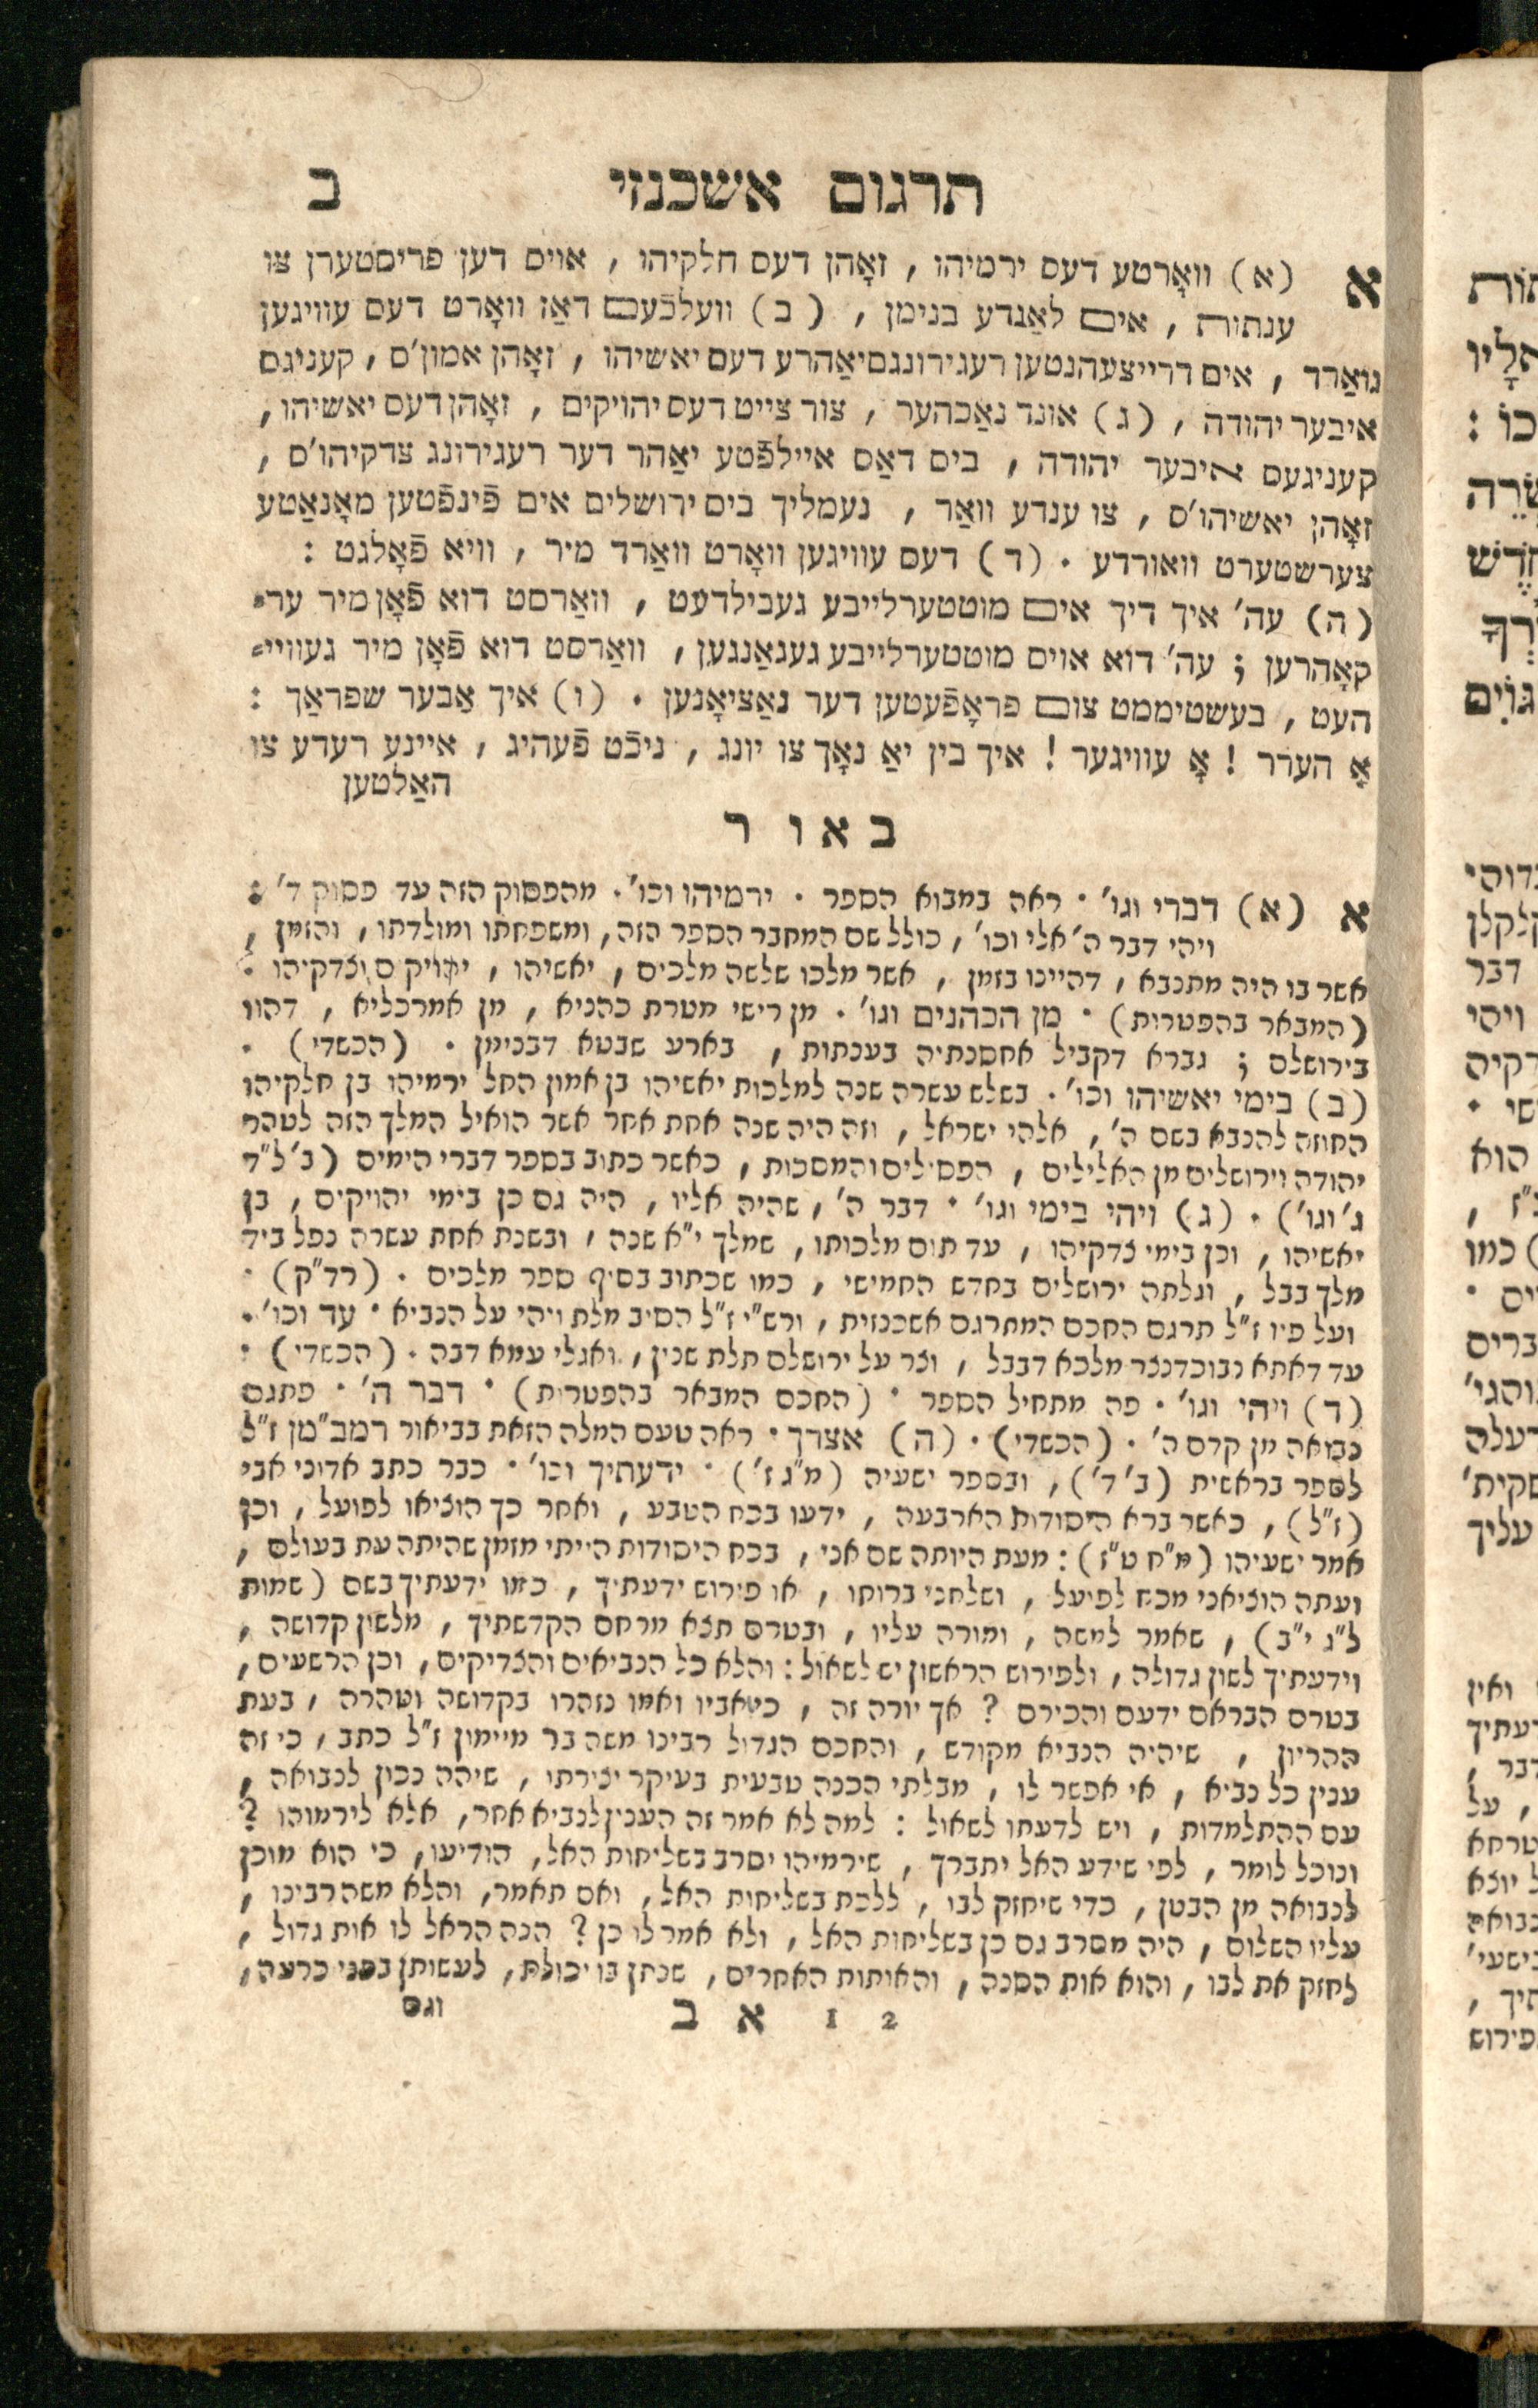 תרגום אשכנזי ב
א (א) וואָרטע דעס ירמיהו , זאָהן דעס חלקיהו , אויס דען פריסטערן צו
ענתות , אים לאַנדע בנימן , (ב) וועלכֿעם דאַז וואָרט דעס עוויגען
גוואַרד , אים דרייצעהנטען רעגירונגסיאַהרע דעס יאשיהו , זאָהן אמון'ס , קעניגס
איבער יהודה , (ג) אונד נאַכהער , צור צייט דעס יהויקים , זאָהן דעס יאשיהו ,
קעניגעס איבער יהודה , ביס דאַס איילפֿטע יאַהר דער רעגירונג צדקיהו'ס ,
זאָהן יאשיהו'ס , צו ענדע וואַר , נעמליך ביס ירושלים אים פֿינפֿטען מאָנאַטע
צערשטערט וואורדע . (ד) דעס עוויגען וואָרט וואַרד מיר , וויא פֿאָלגט :
(ה) עה' איך דיך אים מוטטערלייבע געבילדעט , וואַרסט דוא פֿאָן מיר ער-
קאָהרען ; עה' דוא אויס מוטטערלייבע געגאַנגען , וואַרסט דוא פֿאָן מיר געוויי-
העט , בעשטיממט צום פראָפֿעטען דער נאַציאָנען . (ו) איך אַבער שפראַך :
אָ הערר ! אָ עוויגער ! איך בין יאַ נאָך צו יונג , ניכֿט פֿעהיג , איינע רעדע צו
האַלטען
באור
א (א) דברי וגו' . ראה במבוא הספר . ירמיהו וכו' . מהפסוק הזה עד פסוק ד' :
ויהי דבר ה' אלי וכו' , כולל שם המחבר הספר הזה , ומשפחתו ומולדתו , והזמן ,
אשר בו היה מתנבא , דהיינו בזמן , אשר מלכו שלשה מלכים , יאשיהו , יהויקים וצדקיהו .
(המבאר בהפטרות) . מן הכהנים וגו' . מן רישי מטרת כהניא , מן אמרכליא , דהוו
בירושלם ; גברא דקביל אחסנתיה בענתות , בארע שבטא דבנימן . (הכשדי) .
(ב) בימי יאשיהו וכו' . בשלש עשרה שנה למלכות יאשיהו בן אמון החל ירמיהו בן חלקיהו
החוזה להנבא בשם ה' , אלהי ישראל , וזה היה שנה אחת אחר אשר הואיל המלך הזה לטהר
יהודה וירושלים מן האלילים , הפסילים והמסכות , כאשר כתוב בספר דברי הימים (ב' ל"ד
ג' וגו') . (ג) ויהי בימי וגו' . דבר ה' , שהיה אליו , היה גם כן בימי יהויקים , בן
יאשיהו , וכן בימי צדקיהו , עד תום מלכותו , שמלך י"א שנה , ובשנת אחת עשרה נפל ביד
מלך בבל , וגלתה ירושלים בחדש החמישי , כמו שכתוב בסיף ספר מלכים . (רד"ק) .
ועל פיו ז"ל תרגם החכם המתרגם אשכנזית , ורש"י ז"ל הסיב מלת ויהי על הנביא . עד וכו' .
עד דאתא נבוכדנצר מלכא דבבל , וצר על ירושלם תלת שנין , ואגלי עמא דבה . (הכשדי) :
(ד) ויהי וגו' . פה מתחיל הספר . (החכם המבאר בהפטרות) . דבר ה' . פתגם
נבואה מן קדם ה' . (הכשדי) . (ה) אצרך . ראה טעם המלה הזאת בביאור רמב"מן ז"ל
לספר בראשית (ב' ד') , ובספר ישעיה (מ"ג ז') . ידעתיך וכו' . כבר כתב אדוני אבי
(ז"ל) , כאשר ברא היסודות הארבעה , ידעו בכח הטבע , ואחר כך הוציאו לפועל , וכן
אמר ישעיהו (מ"ח ט"ז) : מעת היותה שם אני , בכח היסודות הייתי מזמן שהיתה עת בעולם ,
ועתה הוציאני מכח לפיעל , ושלחני ברוחו , או פירוש ידעתיך , כמו ידעתיך בשם (שמות
ל"ג י"ב) , שאמר למשה , ומורה עליו , ובטרם תצא מרחם הקדשתיך , מלשון קדושה ,
וידעתיך לשון גדולה , ולפירוש הראשון יש לשאול : והלא כל הנביאים והצדיקים , וכן הרשעים ,
בטרם הבראם ידעם והכירם ? אך יורה זה , כשאביו ואמו נזהרו בקדושה וטהרה , בעת
ההריון , שיהיה הנביא מקודש , והחכם הגדול רבינו משה בר מיימון ז"ל כתב , כי זה
ענין כל נביא , אי אפשר לו , מבלתי הכנה טבעית בעיקר יצירתו , שיהה נכון לנבואה ,
עם ההתלמדות , ויש לדעתו לשאול : למה לא אמר זה הענין לנביא אחר , אלא לירמוהו ?
ונוכל לומר , לפי שידע האל יתברך , שירמיהו יסרב בשליחות האל , הודיעו , כי הוא מוכן
לנבואה מן הבטן , כדי שיחזק לבו , ללכת בשליחות האל , ואם תאמר , והלא משה רבינו ,
עליו השלום , היה מסרב גם כן בשליחות האל , ולא אמר לו כן ? הנה הראל לו אות גדול ,
לחזק את לבו , והוא אות הסנה , והאותות האחרים , שנתן בו יכולת , לעשותן בפני פרעה ,
וגם
א ב 1 2